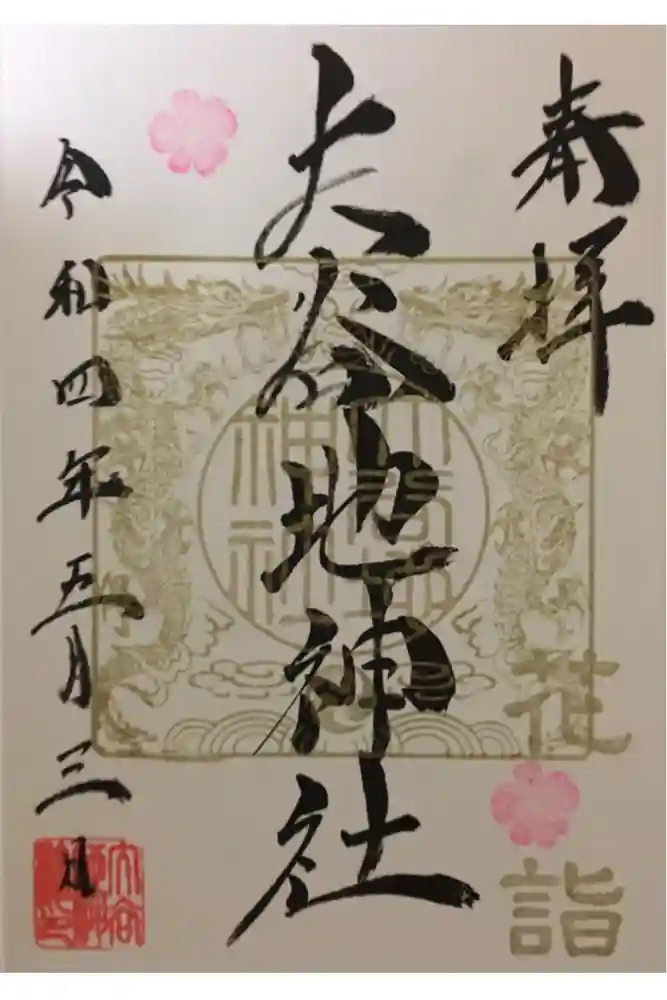 奉拝
花詣
大谷地神社
大谷地
神社
令和四年五月三日